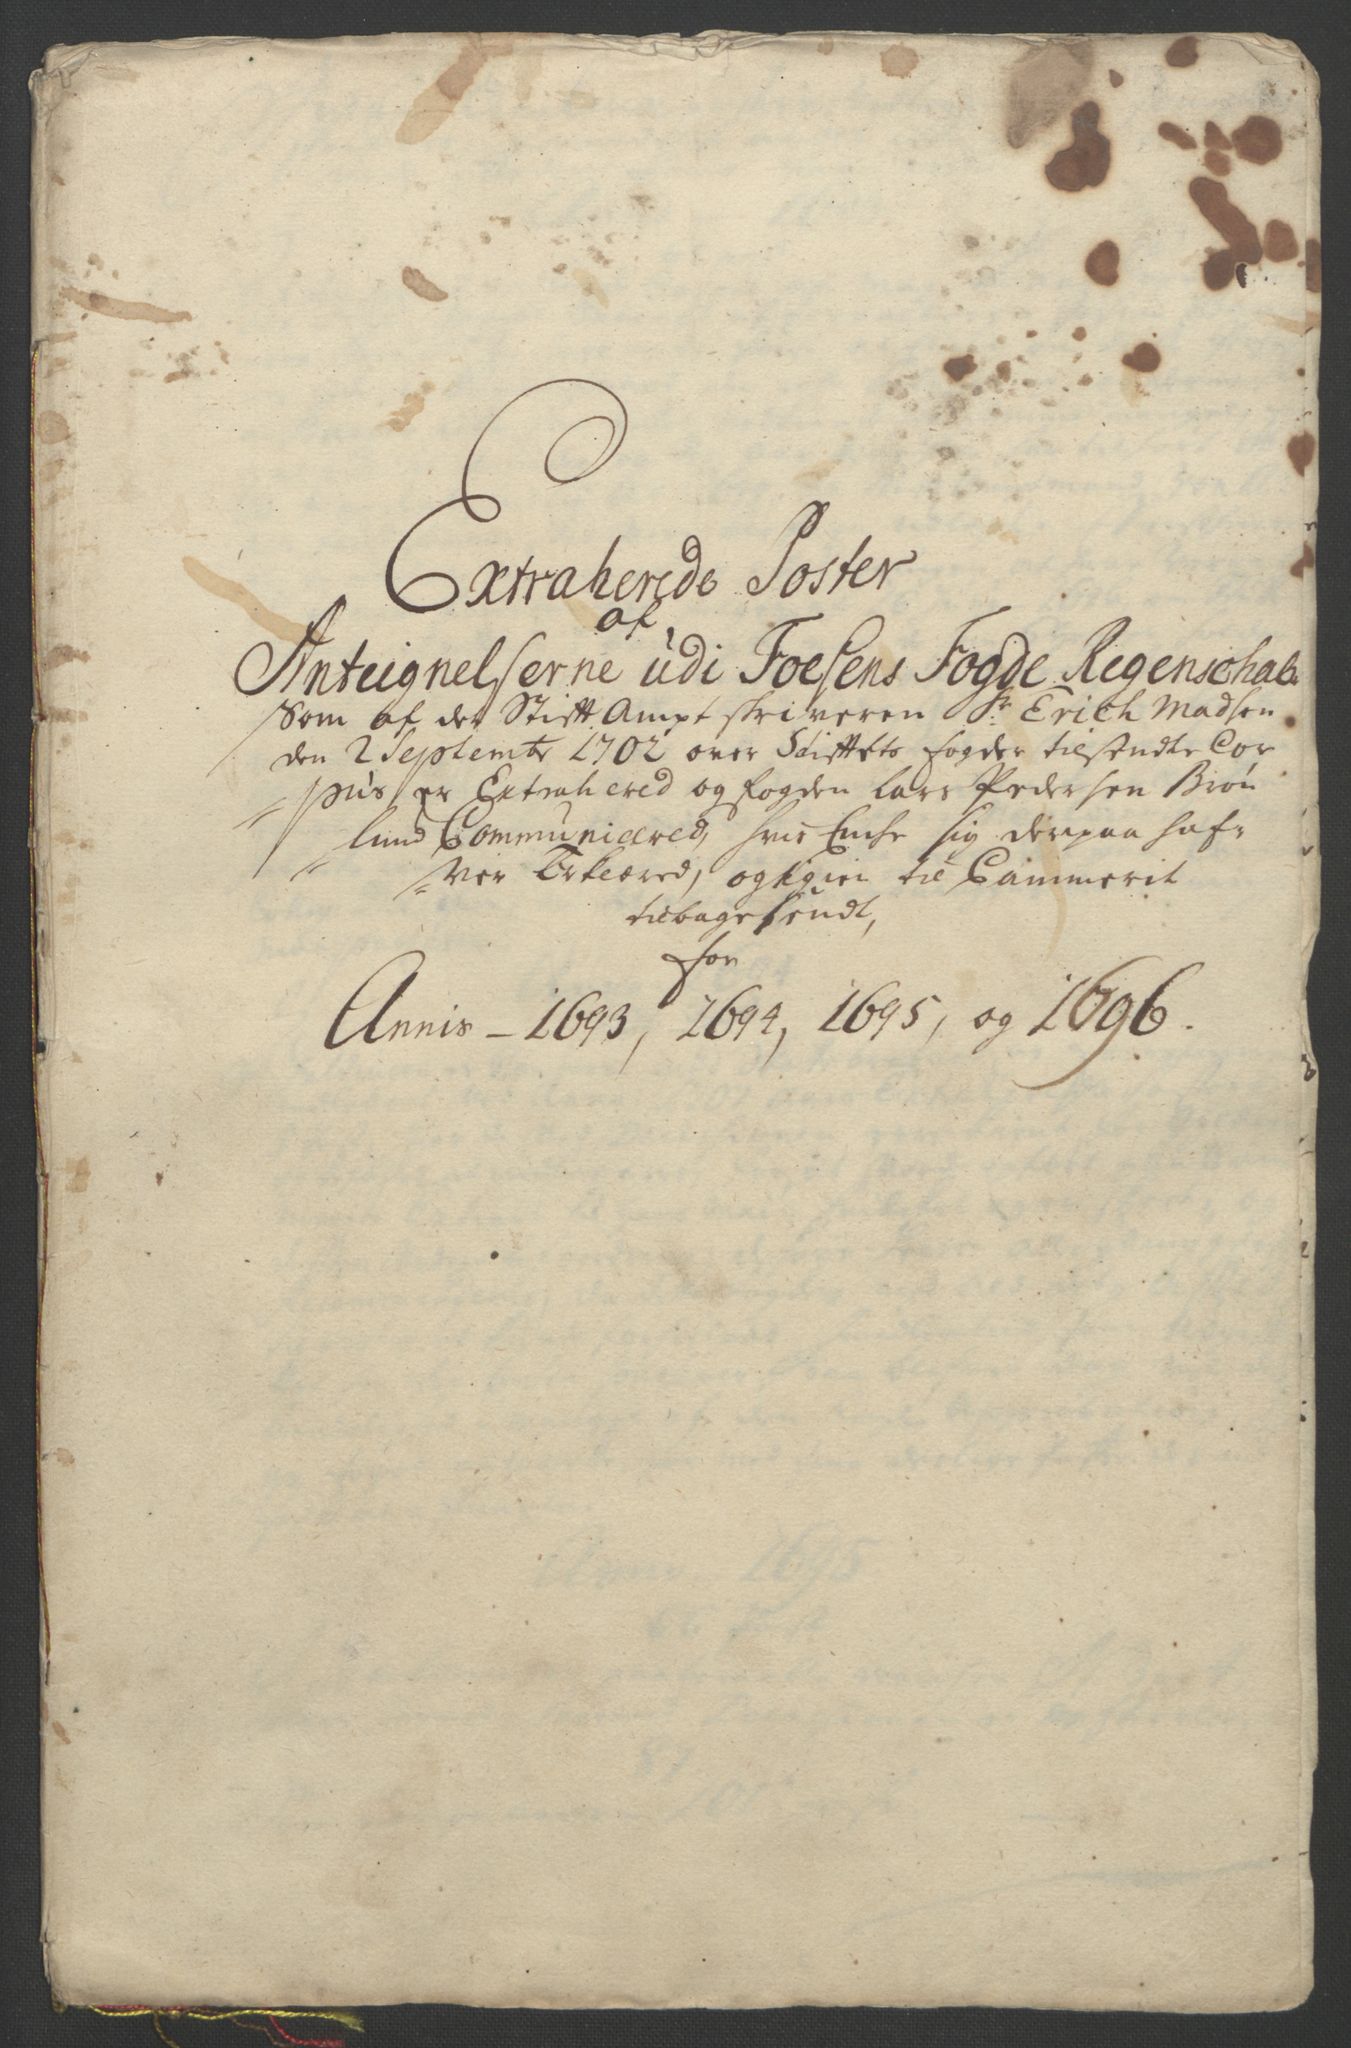 Extraherede Poster
af
Anteignelserne udi Foesens Fogde Regenschab
Som af der Stifft Ampt skriveren Sr. Erich Madsen
den 2 Septembr 1702 over Stifftets fogder tilsendte Cor
pus er Extrahered og fogden Lars Pedersen Brøn
lund Communicered, hvis hand sig derpaa haf-
ver Erklæred, og igien til Cammerit
tilbagesendt,
for
Annis - 1693, 1694, 1695, og 1696.